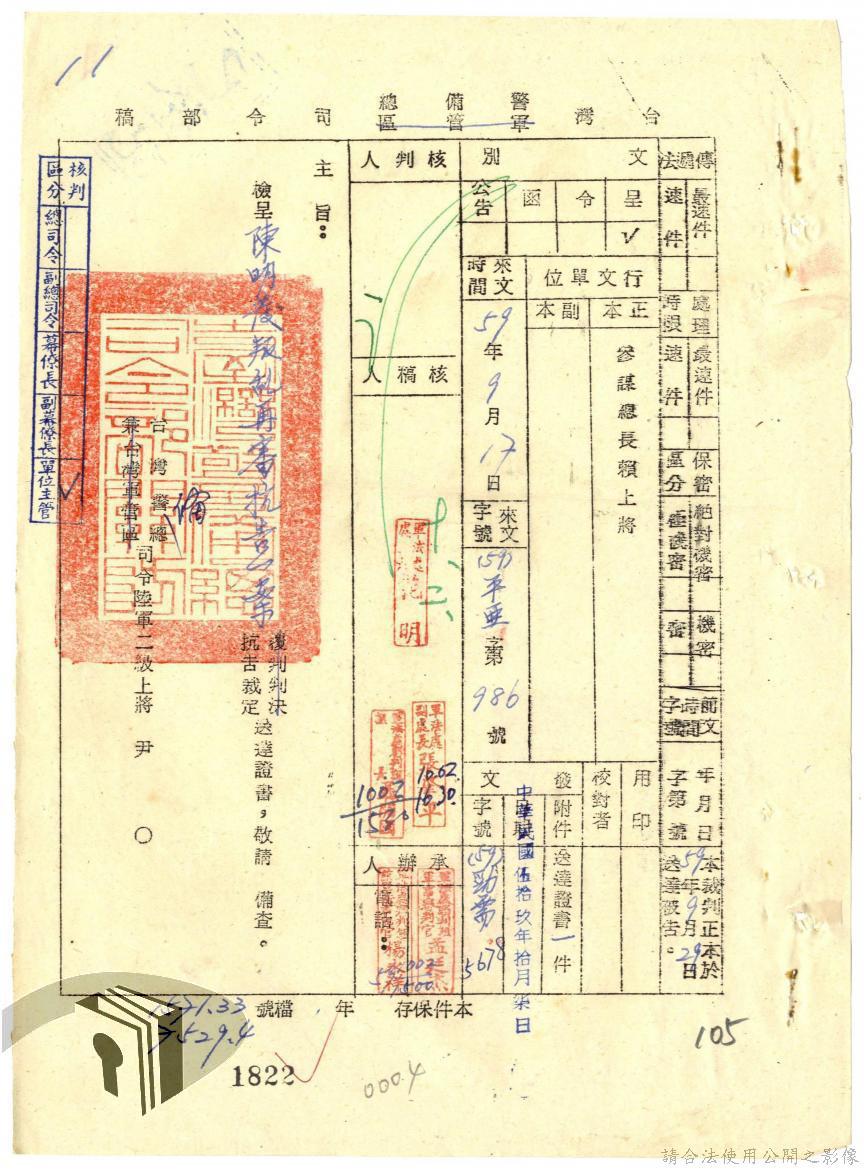 11
台灣軍管區司令部稿
警備總
傳遞法
最速件
速件
處理時限
最速件
速件
保密區分
絕對機密
極機密
機密
密
前文時間字號
年月日
字第 號
本裁判正本於
59年9月29日
送達被告。
文別
呈
令
函
公告
√
行文單位
正本
副本
參謀總長賴上將
來文時間
59年9月17日
來文字號
(59)平亞字第986號
用印
校對者
發文
附件
送達證書一件
中華民國伍拾玖年拾月柒日
字號
(59)勁需5678
核判人
核稿人
軍法處
明
軍法處副處長
1002
1630
1003
1530
承辦人
電話:
主旨:
檢呈陳明發叛亂再審抗告案
復判判決
抗告裁定
送達證書,敬請 備查。
台灣警備總
兼台灣軍管區
司令陸軍二級上將 尹 ○
核判區分
總司令
副總司令
幕僚長
副幕僚長
單位主管
√
本件保存 年,檔號
1571.33
7529.4
105
1822
0004
請合法使用公開之影像